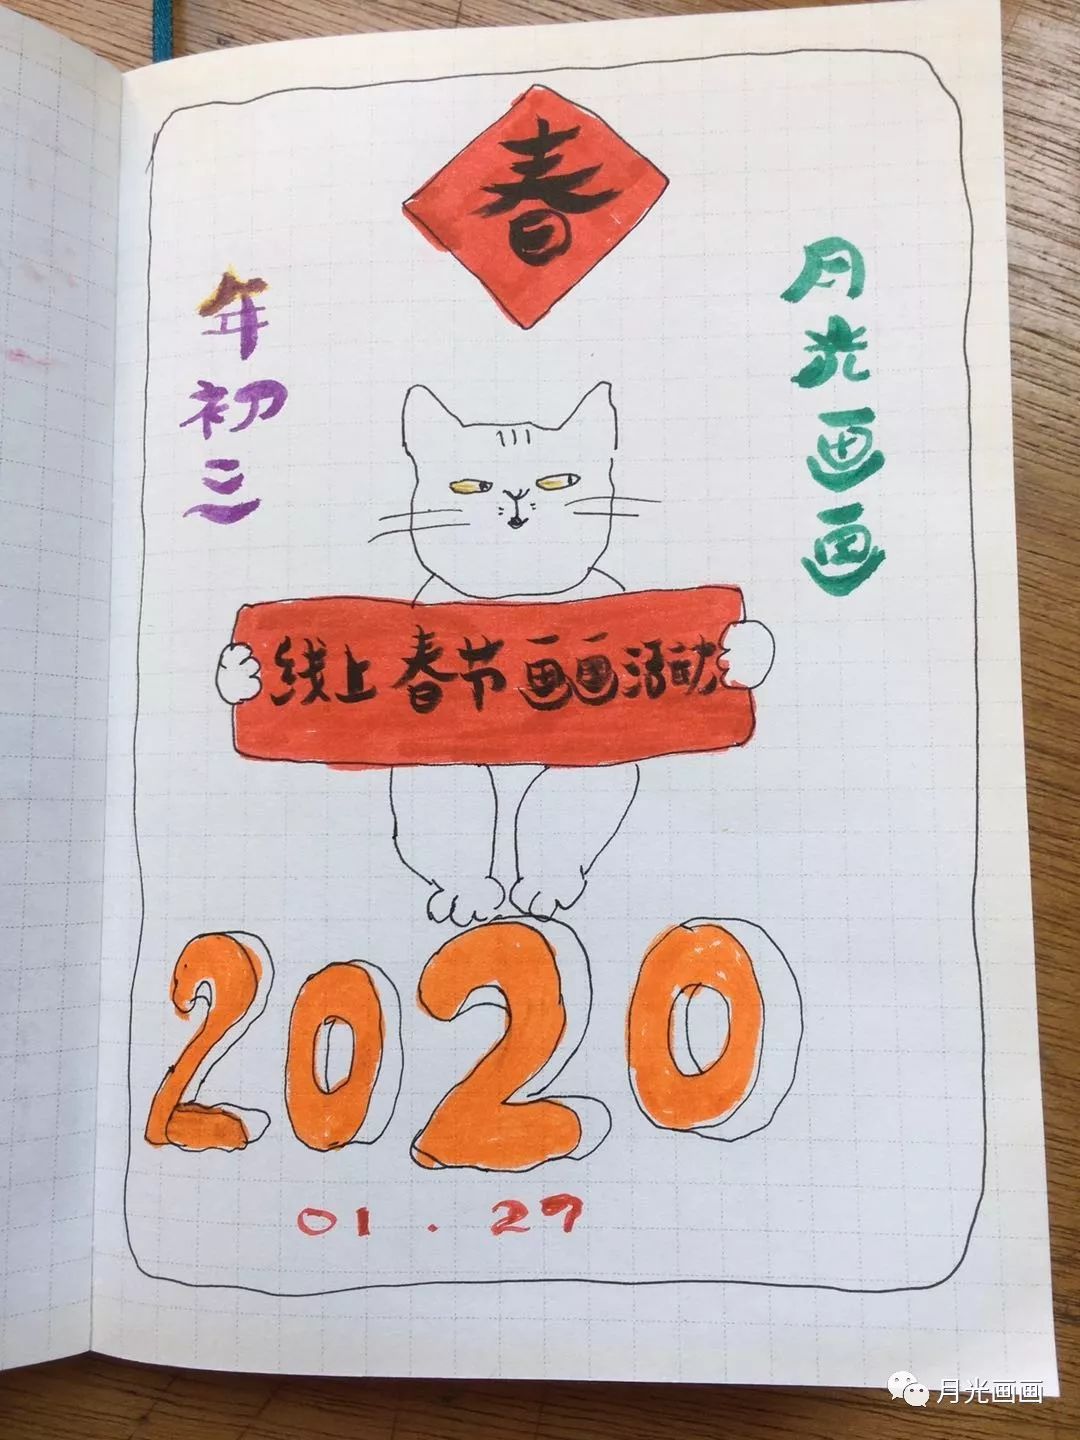 春
年初三
月光画画
线上春节画画活动
2020
01.27
月光画画